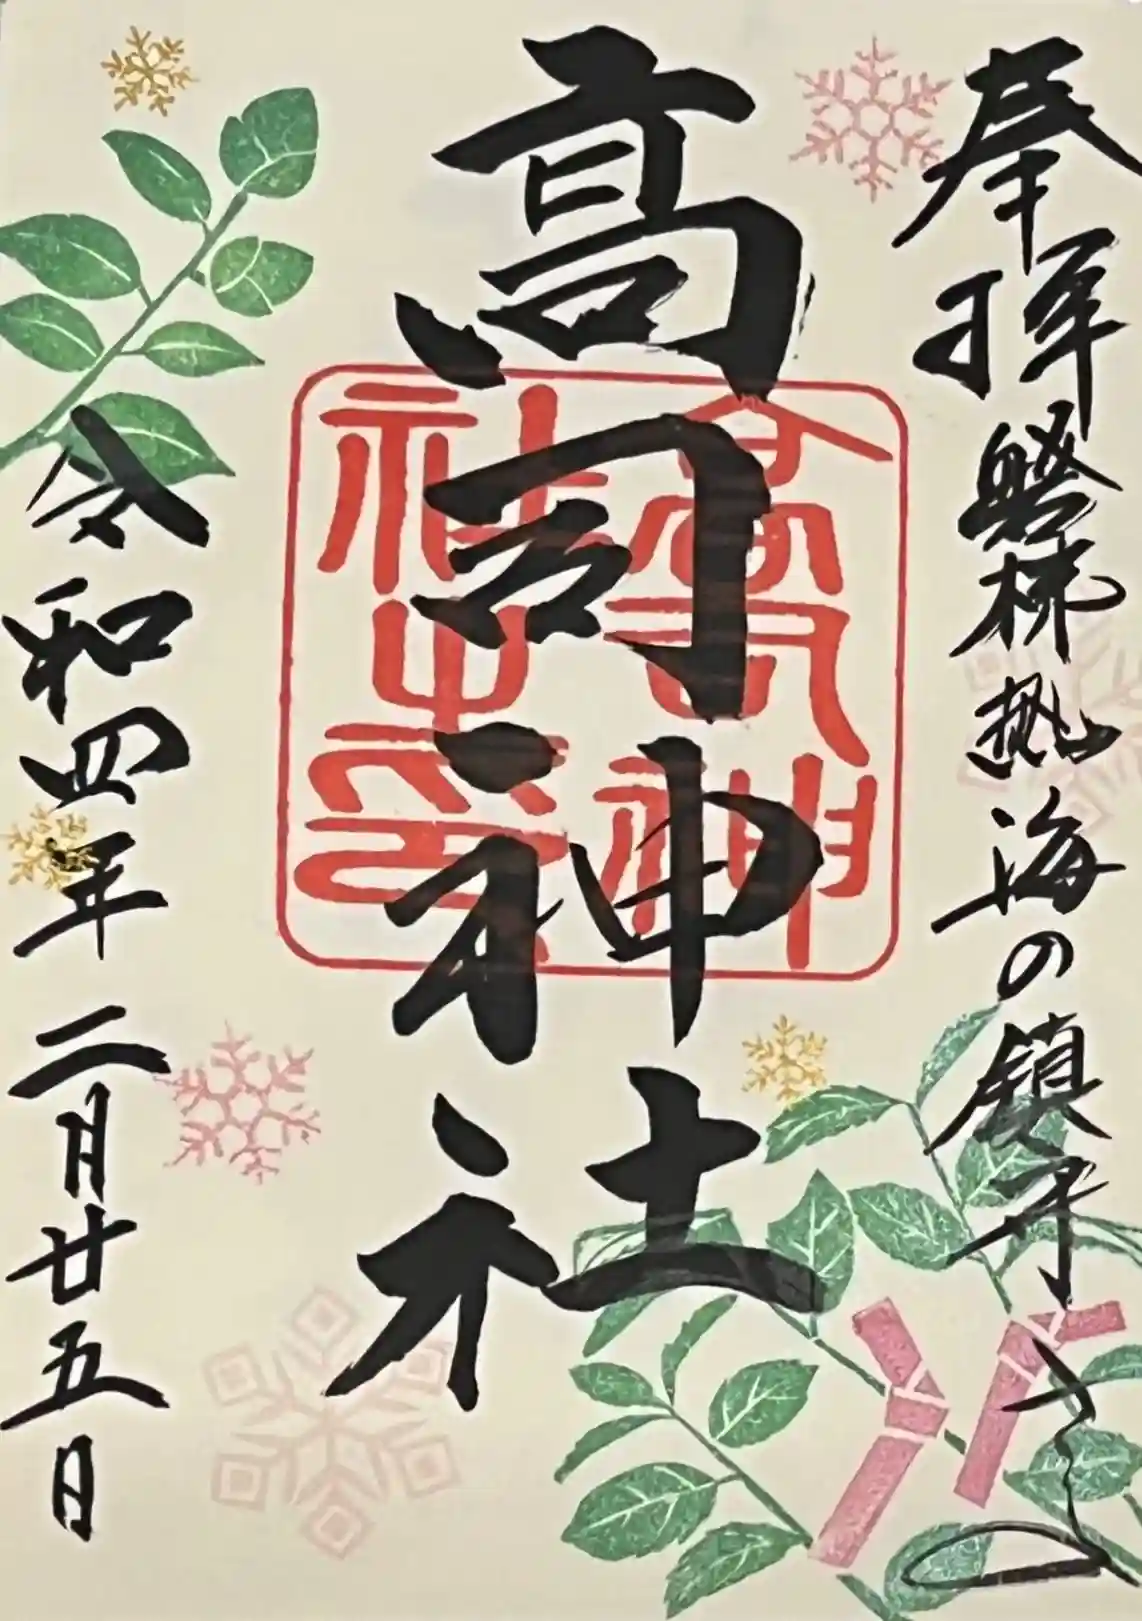 奉拝 磐梯熱海の鎮守
高司神社
高司神
社之印
令和四年二月廿五日